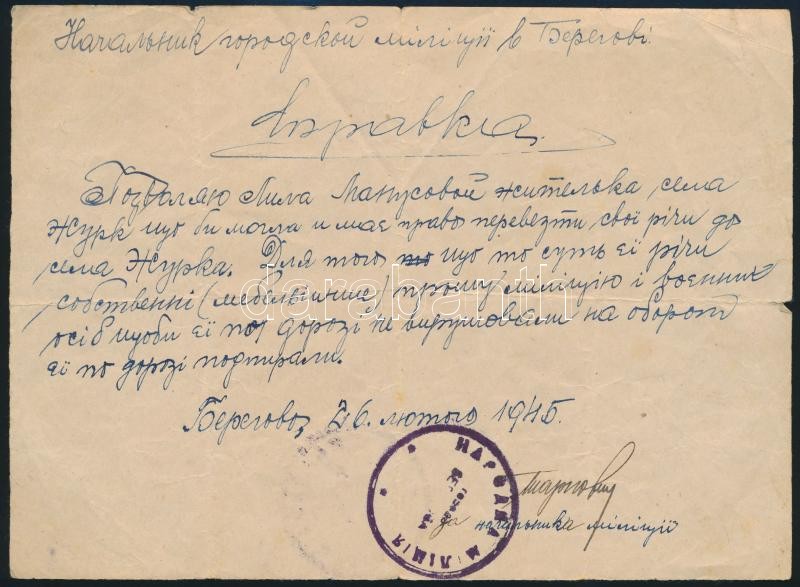 Начальник городской міліції в Берегові.
Справка
Позваляю Лила Манусовой жителька села
Журк що би могла и має право перевезти свої річи до
села Журка. Для того що то суть єї річи
собственні (мебель) прошу міліцію і воєнних
осіб щоби єї по дорозі не вирушовали на оборот
єї по дорозі подпирали.
Берегово, 26. лютого 1945.
за начальника міліції
НАРОДНА МІЛІЦІЯ
darabanth